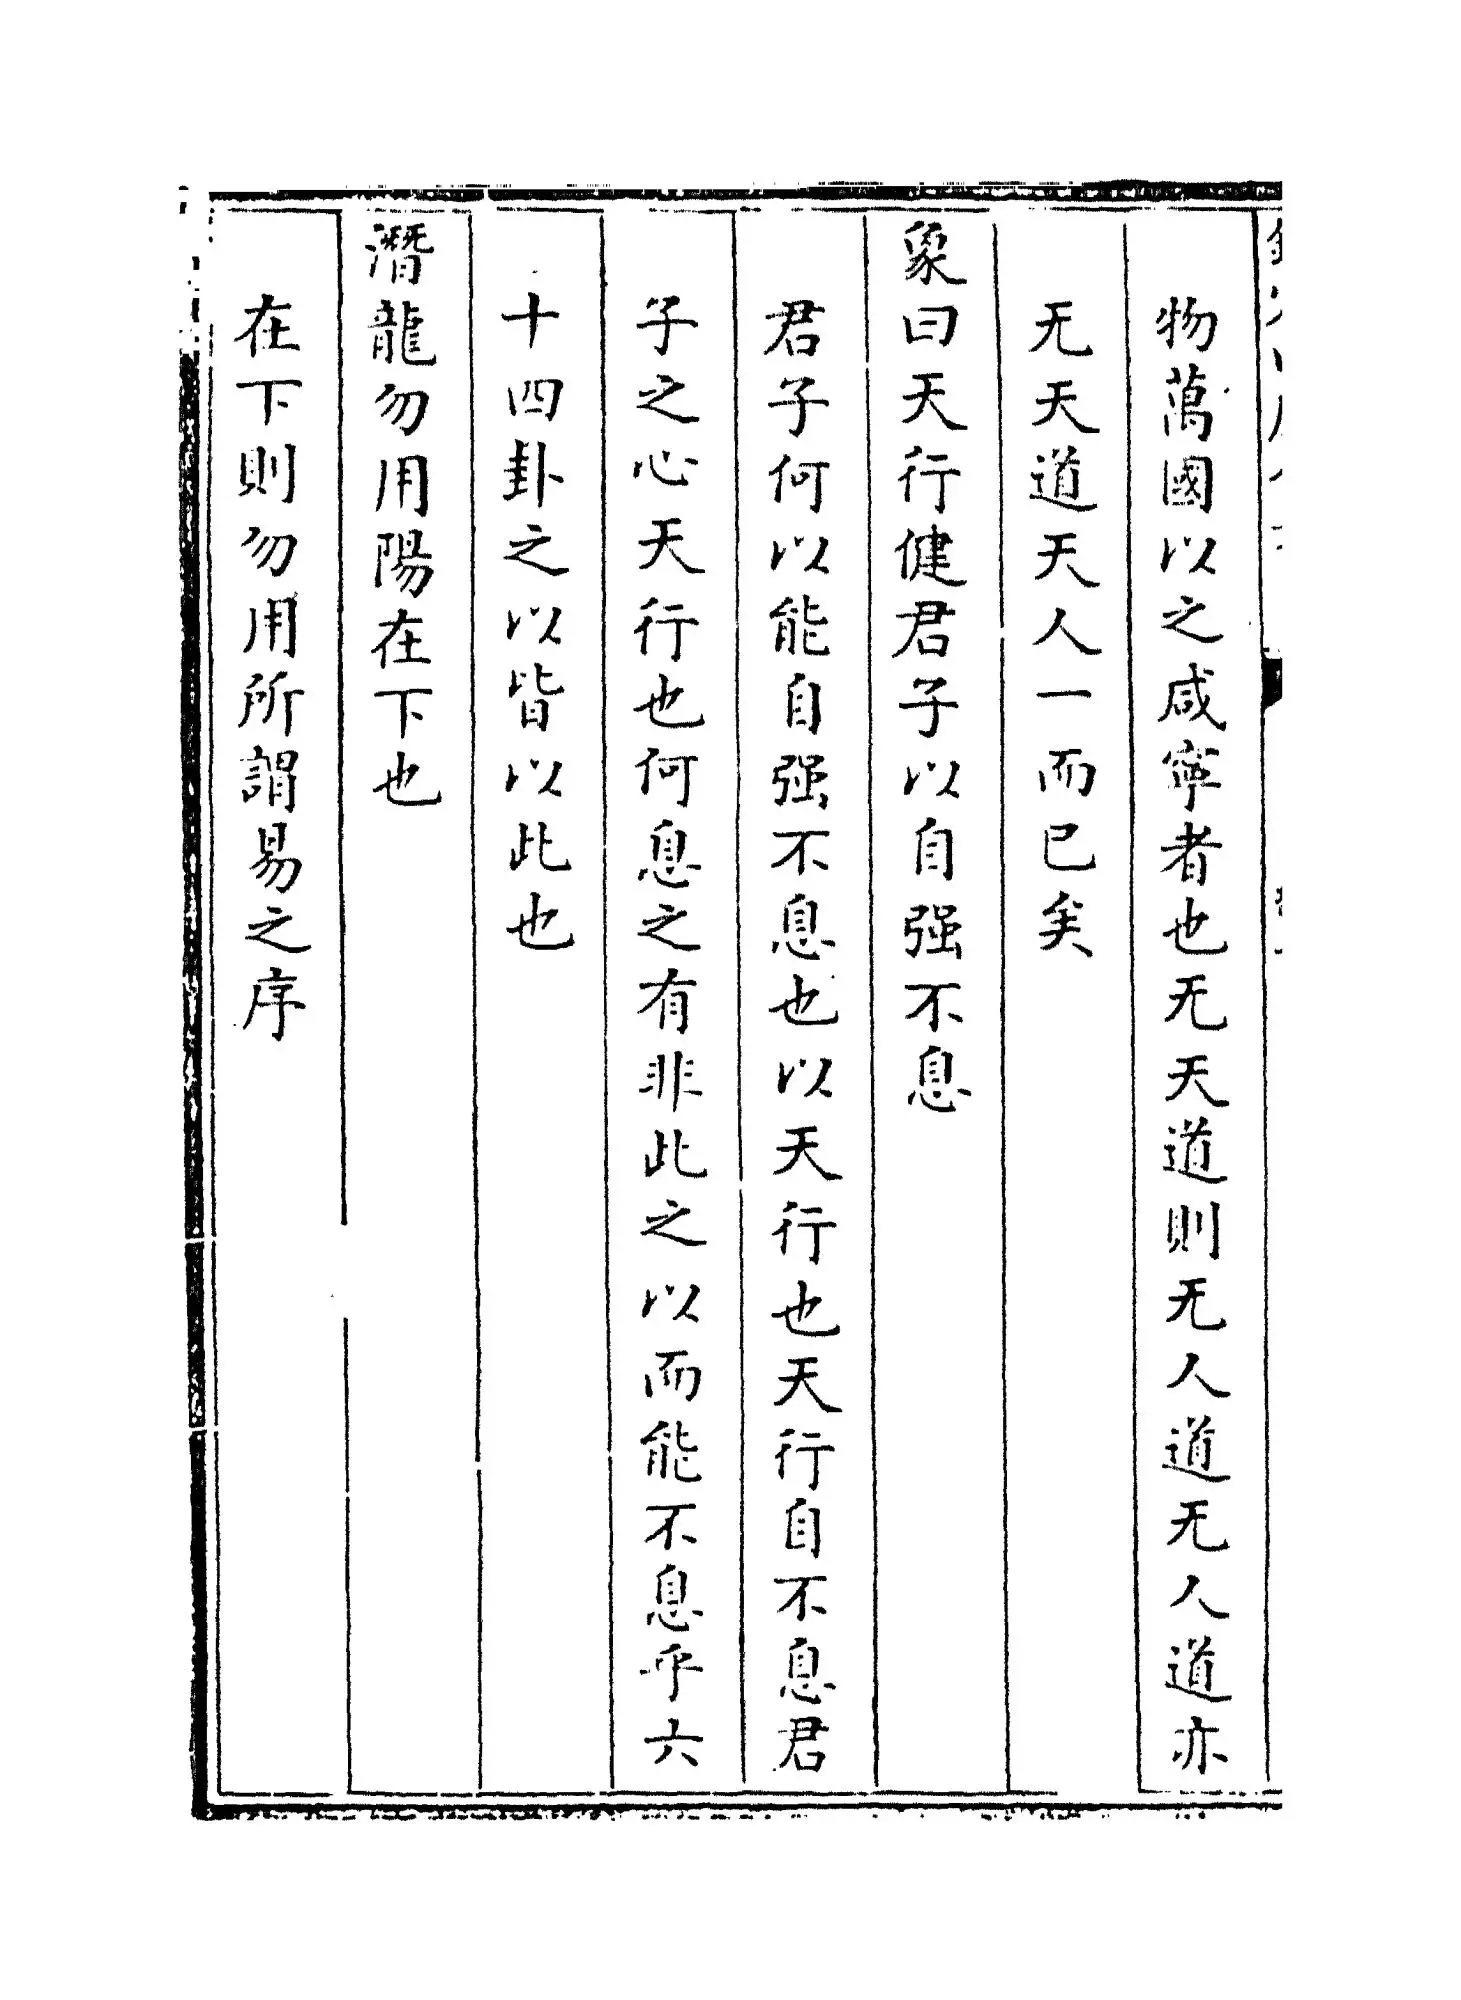 物萬國以之咸寧者也无天道則无人道无人道亦
无天道天人一而已矣
象曰天行健君子以自强不息
君子何以能自强不息也以天行也天行自不息君
子之心天行也何息之有非此之以而能不息乎六
十四卦之以皆以此也
潛龍勿用陽在下也
在下則勿用所謂易之序